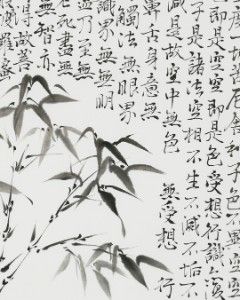 是空空即是色受想行識亦復
子是諸法空相不生不滅不垢不
減是故空中無色無受想行
舌身意無
觸法無眼界
識界無無明
盡乃至無
老死盡無
無智亦
得故菩
羅蜜